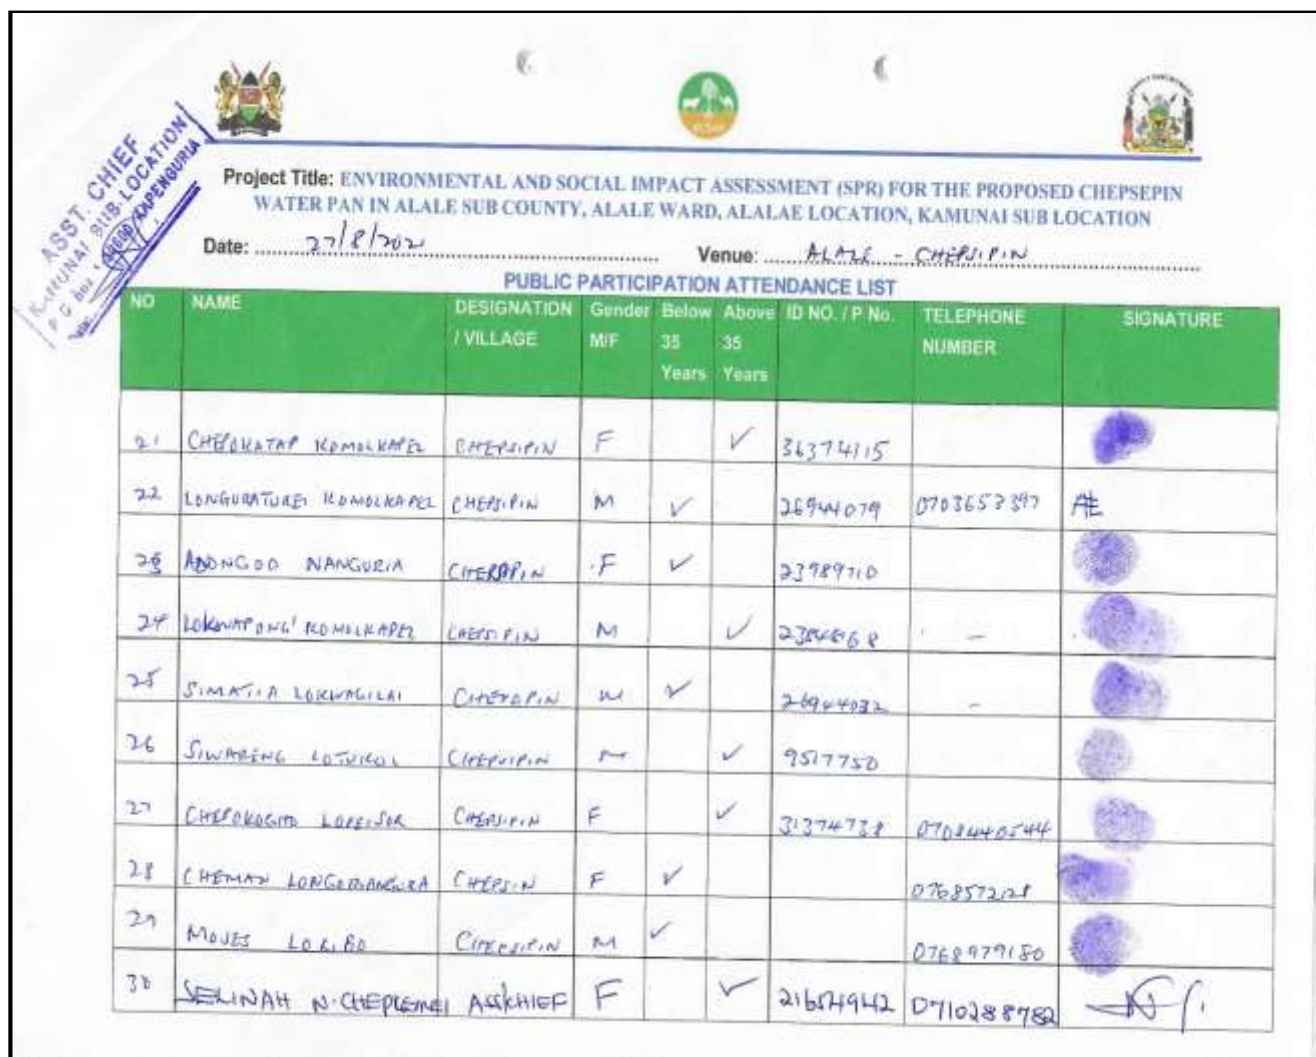 ASST. CHIEF
KAMUNAI SUB-LOCATION
P O Box KAPENGURIA
Project Title: ENVIRONMENTAL AND SOCIAL IMPACT ASSESSMENT (SPR) FOR THE PROPOSED CHEPSEPIN
WATER PAN IN ALALE SUB COUNTY, ALALE WARD, ALALAE LOCATION, KAMUNAI SUB LOCATION
Date: 27/8/2021 Venue: ALALE - CHEPSIPIN
PUBLIC PARTICIPATION ATTENDANCE LIST
NO NAME DESIGNATION / VILLAGE Gender M/F Below 35 Years Above 35 Years ID NO. / P No. TELEPHONE NUMBER SIGNATURE
21 CHEPOKATAP KOMOLKAPEL CHEPSIPIN F ✓ 36374115
22 LONGURATUREI KOMOLKAPEL CHEPSIPIN M ✓ 26944079 0703653397
23 NANGURIA F ✓ 23989710
24 KOMOLKAPEL CHEPSIPIN M ✓ -
25 LOKWAGILAI M ✓ 26944032 -
26 SIWARENG CHEPSIPIN M ✓ 9517750
27 CHEPSIPIN F ✓ 31374738 0708440544
28 CHEMAN CHEPSIN F ✓ 0768572128
29 MOSES CHEPSIPIN M ✓ 0768979180
30 SELINAH N. CHEPLEMEI ASS/CHIEF F ✓ 21654942 0710288782